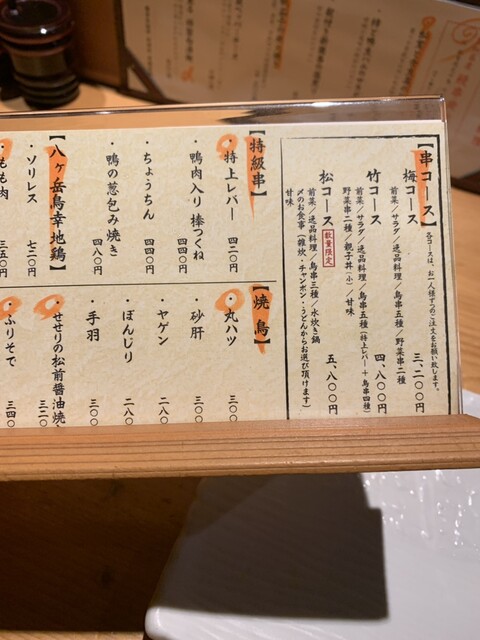 【串コース】各コースは、お一人様ずつのご注文をお願い致します。
梅コース 三、二〇〇円
前菜／サラダ／逸品料理／鳥串五種／野菜串二種
竹コース 四、八〇〇円
前菜／サラダ／逸品料理／鳥串五種（特上レバー＋鳥串四種）
野菜串二種／親子丼（小）／甘味
松コース 数量限定 五、八〇〇円
前菜／逸品料理／鳥串三種／水炊き鍋
〆のお食事（雑炊・チャンポン・うどんからお選び頂けます）
甘味
【特級串】
・特上レバー 四二〇円
・鴨肉入り棒つくね 四四〇円
・ちょうちん 四四〇円
・鴨の葱包み焼き 四八〇円
【八ヶ岳鳥幸地鶏】
・ソリレス 七二〇円
・もも肉 三五〇円
【焼鳥】
・丸ハツ 三〇〇
・砂肝 三〇〇
・ヤゲン 二八〇
・ぼんじり 二八〇
・手羽 三〇〇
・せせりの松前醤油焼 三二〇
・ふりそで 三四〇